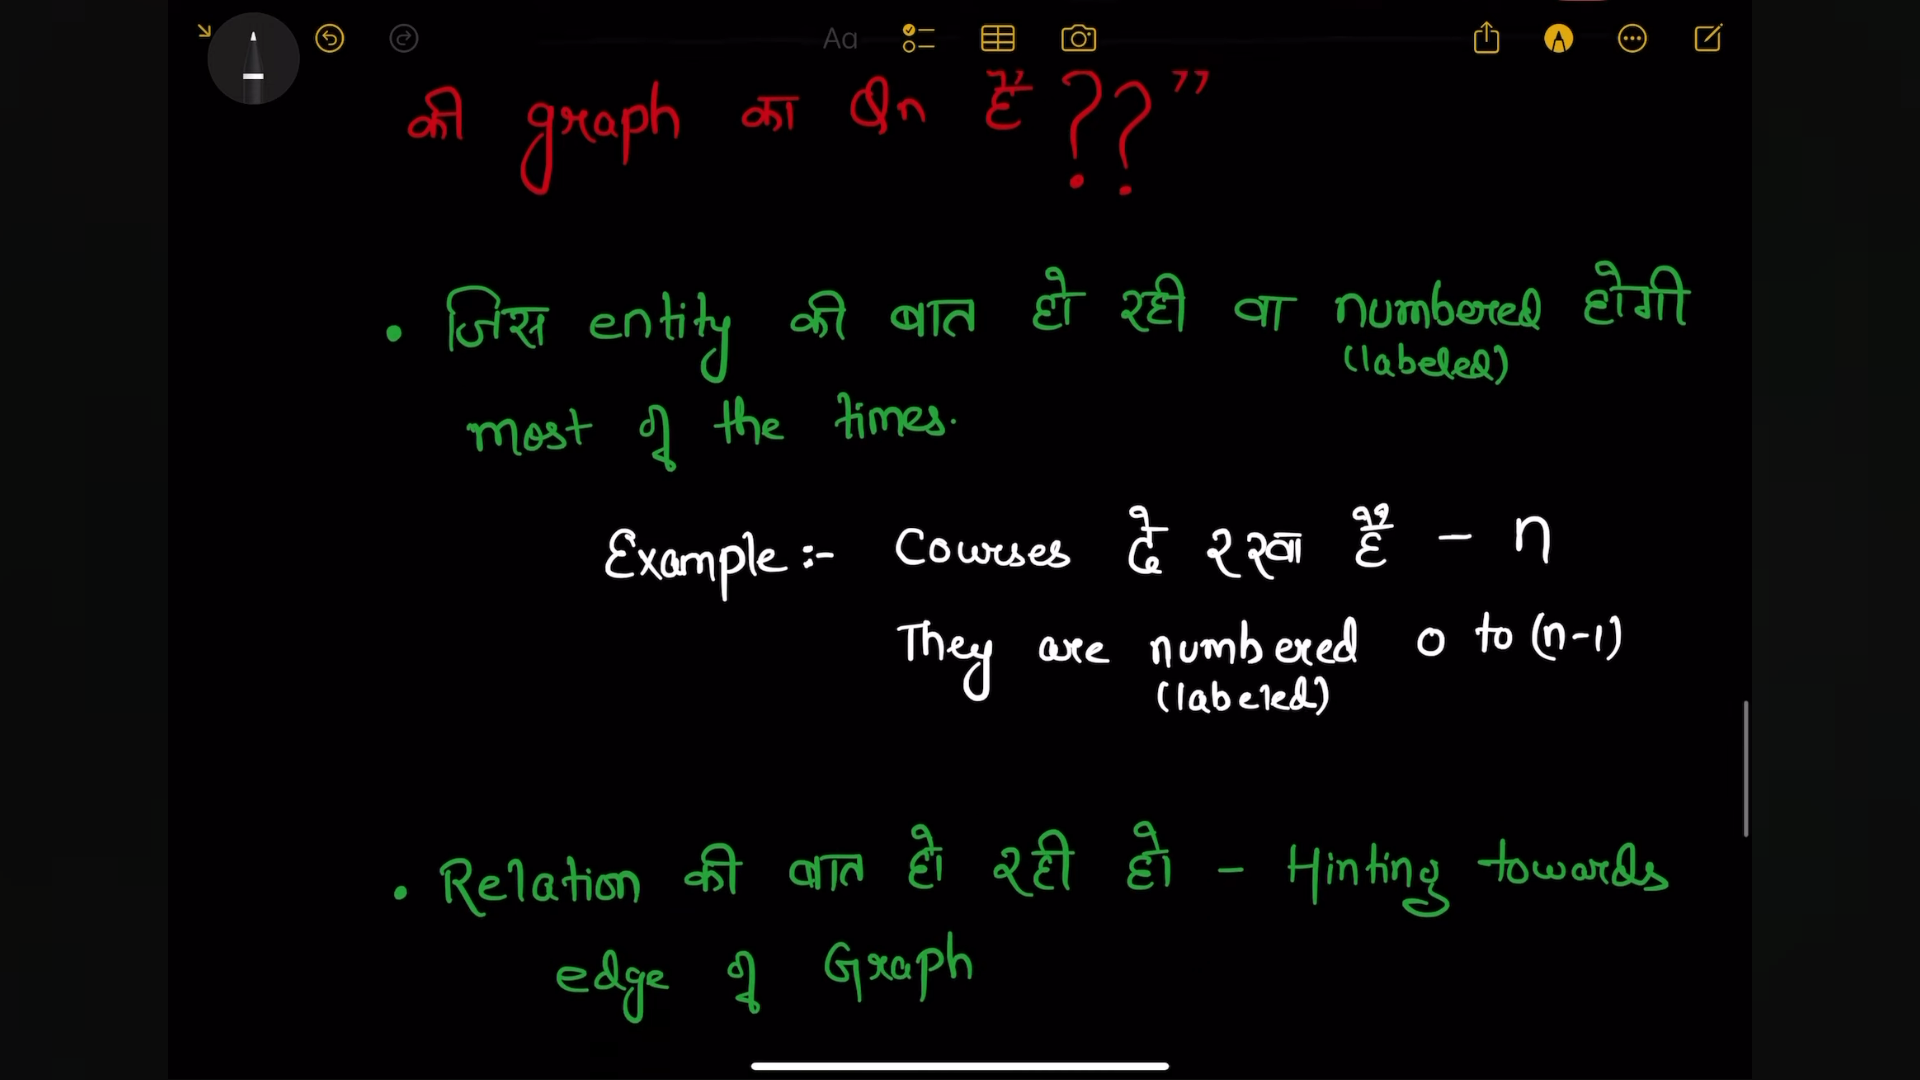 Aa
की graph का Qn है ??”
• जिस entity की बात हो रही वा numbered होगी
(labeled)
most of the times.
Example :- Courses दे रखा है - n
They are numbered 0 to (n-1)
(labeled)
• Relation की बात हो रही हो - Hinting towards
edge of Graph